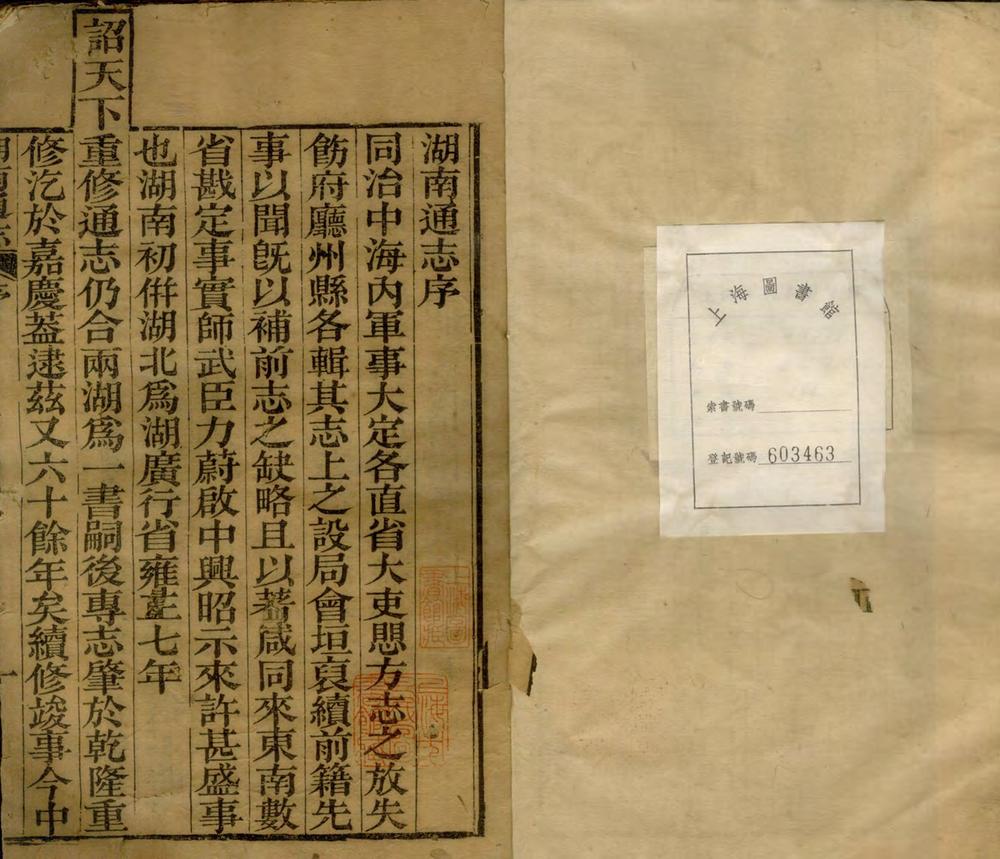 上海圖書館
索書號碼
登記號碼 603463
湖南通志序
同治中海內軍事大定各直省大吏思方志之放失
飭府廳州縣各輯其志上之設局會垣裒續前籍先
事以聞旣以補前志之缺略且以著咸同來東南數
省戡定事實師武臣力蔚啟中興昭示來許甚盛事
也湖南初併湖北爲湖廣行省雍正七年
詔天下重修通志仍合兩湖爲一書嗣後專志肇於乾隆重
修汔於嘉慶蓋逮茲又六十餘年矣續修竣事今中
序
一